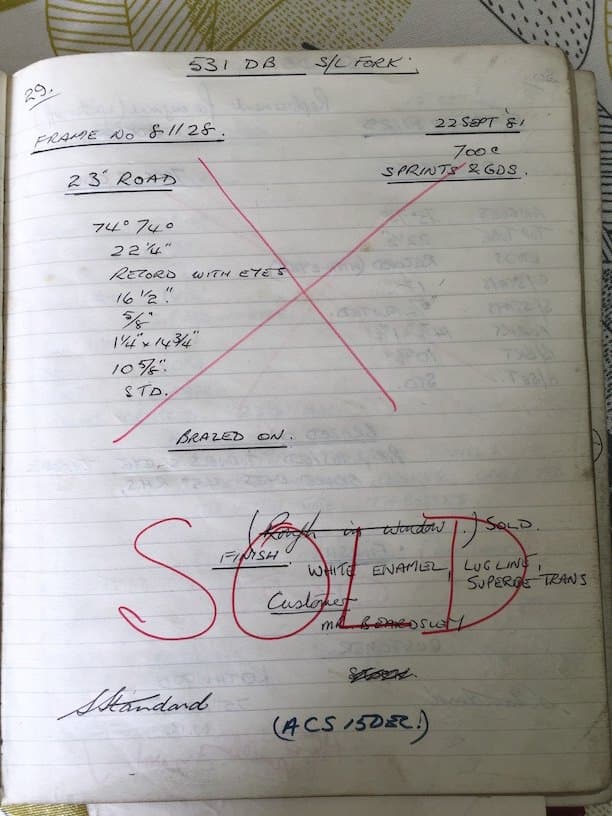 531 DB S/L FORK.
29.
FRAME NO 81128.
22 SEPT '81
700c
SPRINTS & GDS.
23" ROAD
74° 74°
22 1/4"
RECORD WITH EYES
16 1/2"
5/8"
1 1/4" x 14 3/4"
10 5/8".
STD.
BRAZED ON.
(Rough in window.) SOLD.
FINISH. WHITE ENAMEL, LUG LINE,
SUPERBE TRANS
Customer
MR. BEARDSLEY
SOLD
S Standard
(ACS 15 DEC.)